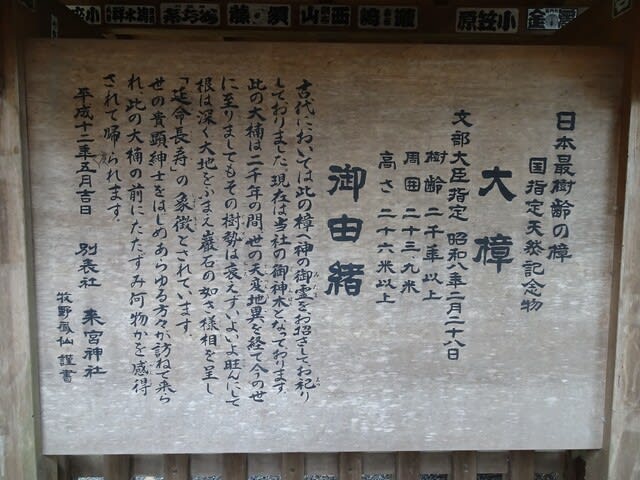 日本最樹齢の樟
国指定天然記念物
大樟
文部大臣指定 昭和八年二月二十八日
樹齢 二千年以上
周囲 二十三.九米
高さ 二十六米以上
御由緒
古代においては此の樟へ神の御霊をお招きしてお祀り
しておりました現在は当社の御神木となっております
此の大楠は二千年の間世の天変地異を経て今の世
に至りましてもその樹勢は衰えずいよいよ旺んにして
根は深く大地をふまえ巌石の如き様相を呈し
「延命長寿」の象徴とされています。
世の貴顕紳士をはじめあらゆる方々が訪ねて来ら
れ、此の大楠の前にたたずみ何物かを感得
されて帰られます。
平成十二年五月吉日
別表社 来宮神社
牧野鳳仙 謹書
小笠原
瀧崎
西山
須藤